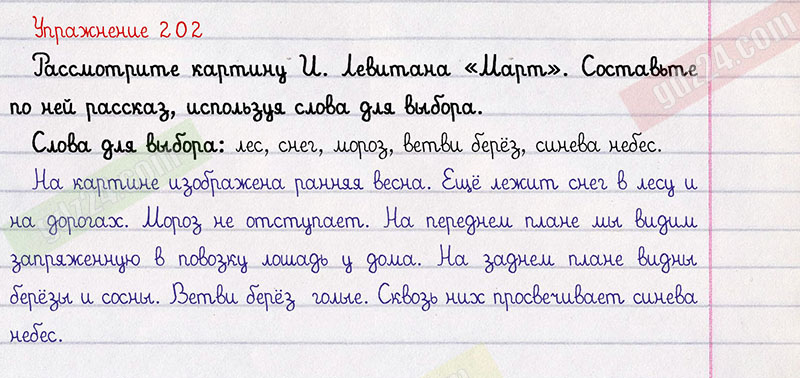 Упражнение 202
Рассмотрите картину И. Левитана «Март». Составьте
по ней рассказ, используя слова для выбора.
Слова для выбора: лес, снег, мороз, ветви берёз, синева небес.
На картине изображена ранняя весна. Ещё лежит снег в лесу и
на дорогах. Мороз не отступает. На переднем плане мы видим
запряженную в повозку лошадь у дома. На заднем плане видны
берёзы и сосны. Ветви берёз голые. Сквозь них просвечивает синева
небес.
gdz24.com
gdz24.com